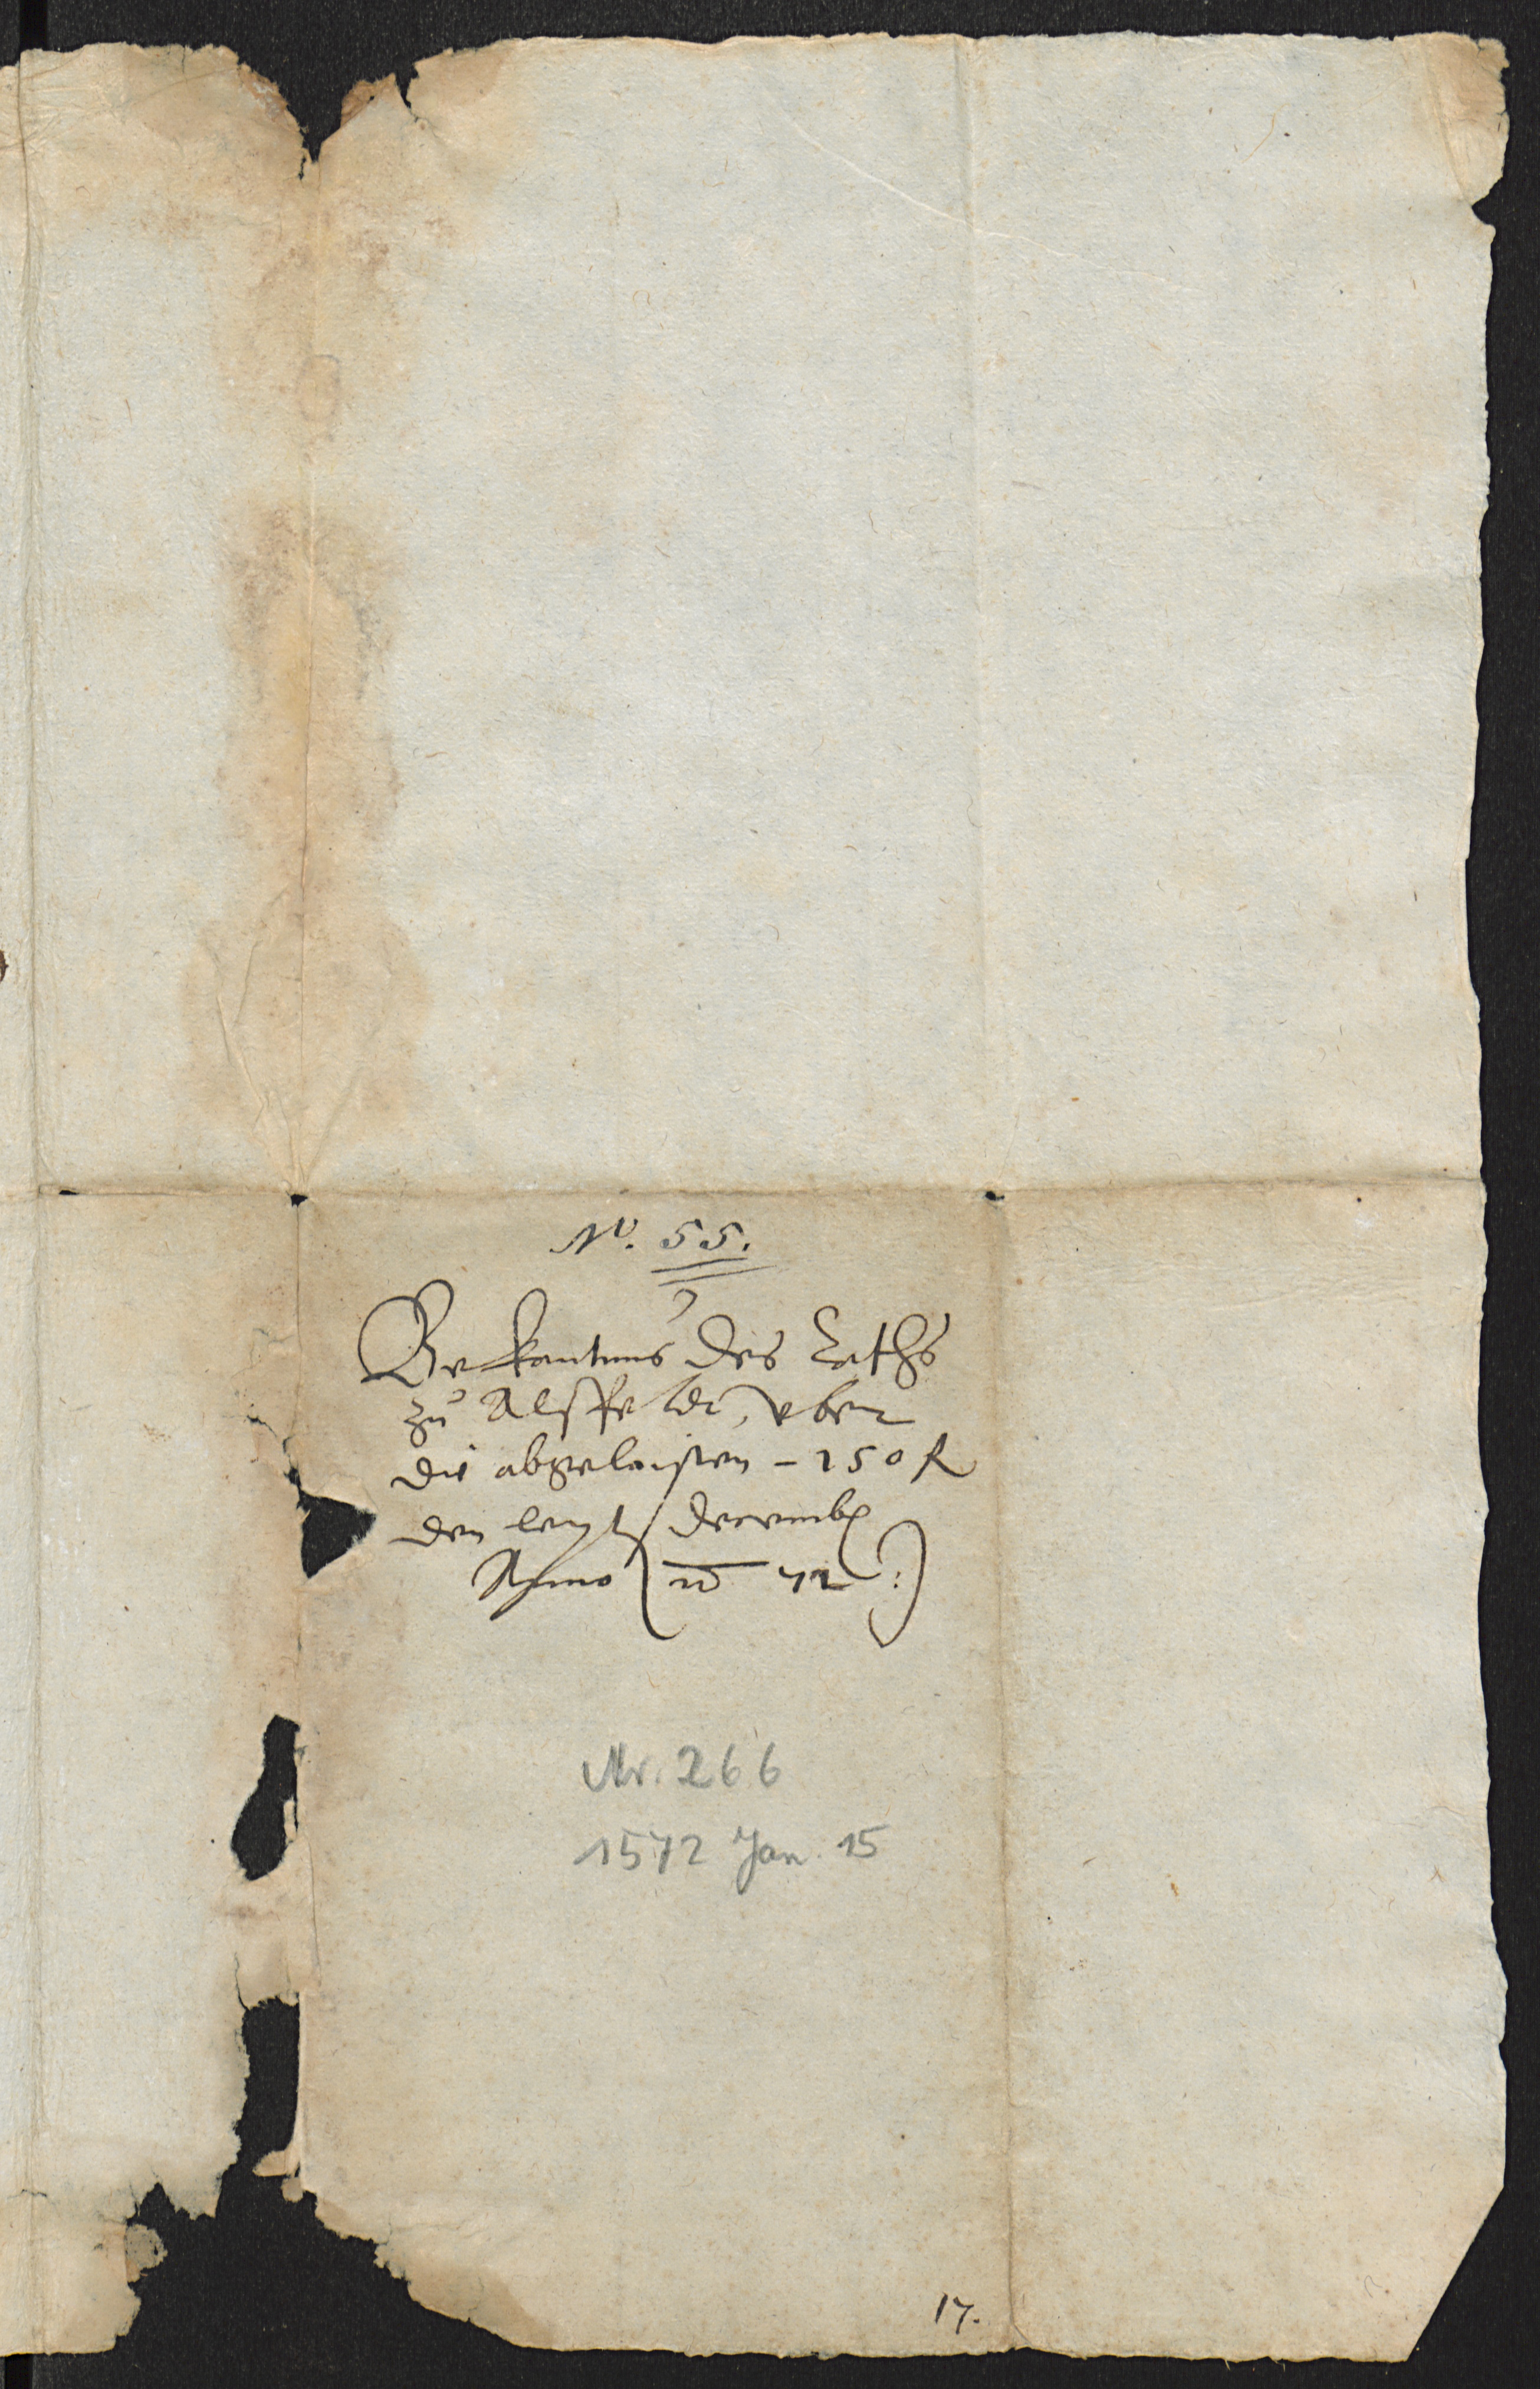 No. 55.
Bekantnus des Raths
zu Alsfeldt, vber
die abgelaisten - 250 fl
den letzt decemb
Anno 72
Nr. 266
1572 Jan. 15
17.